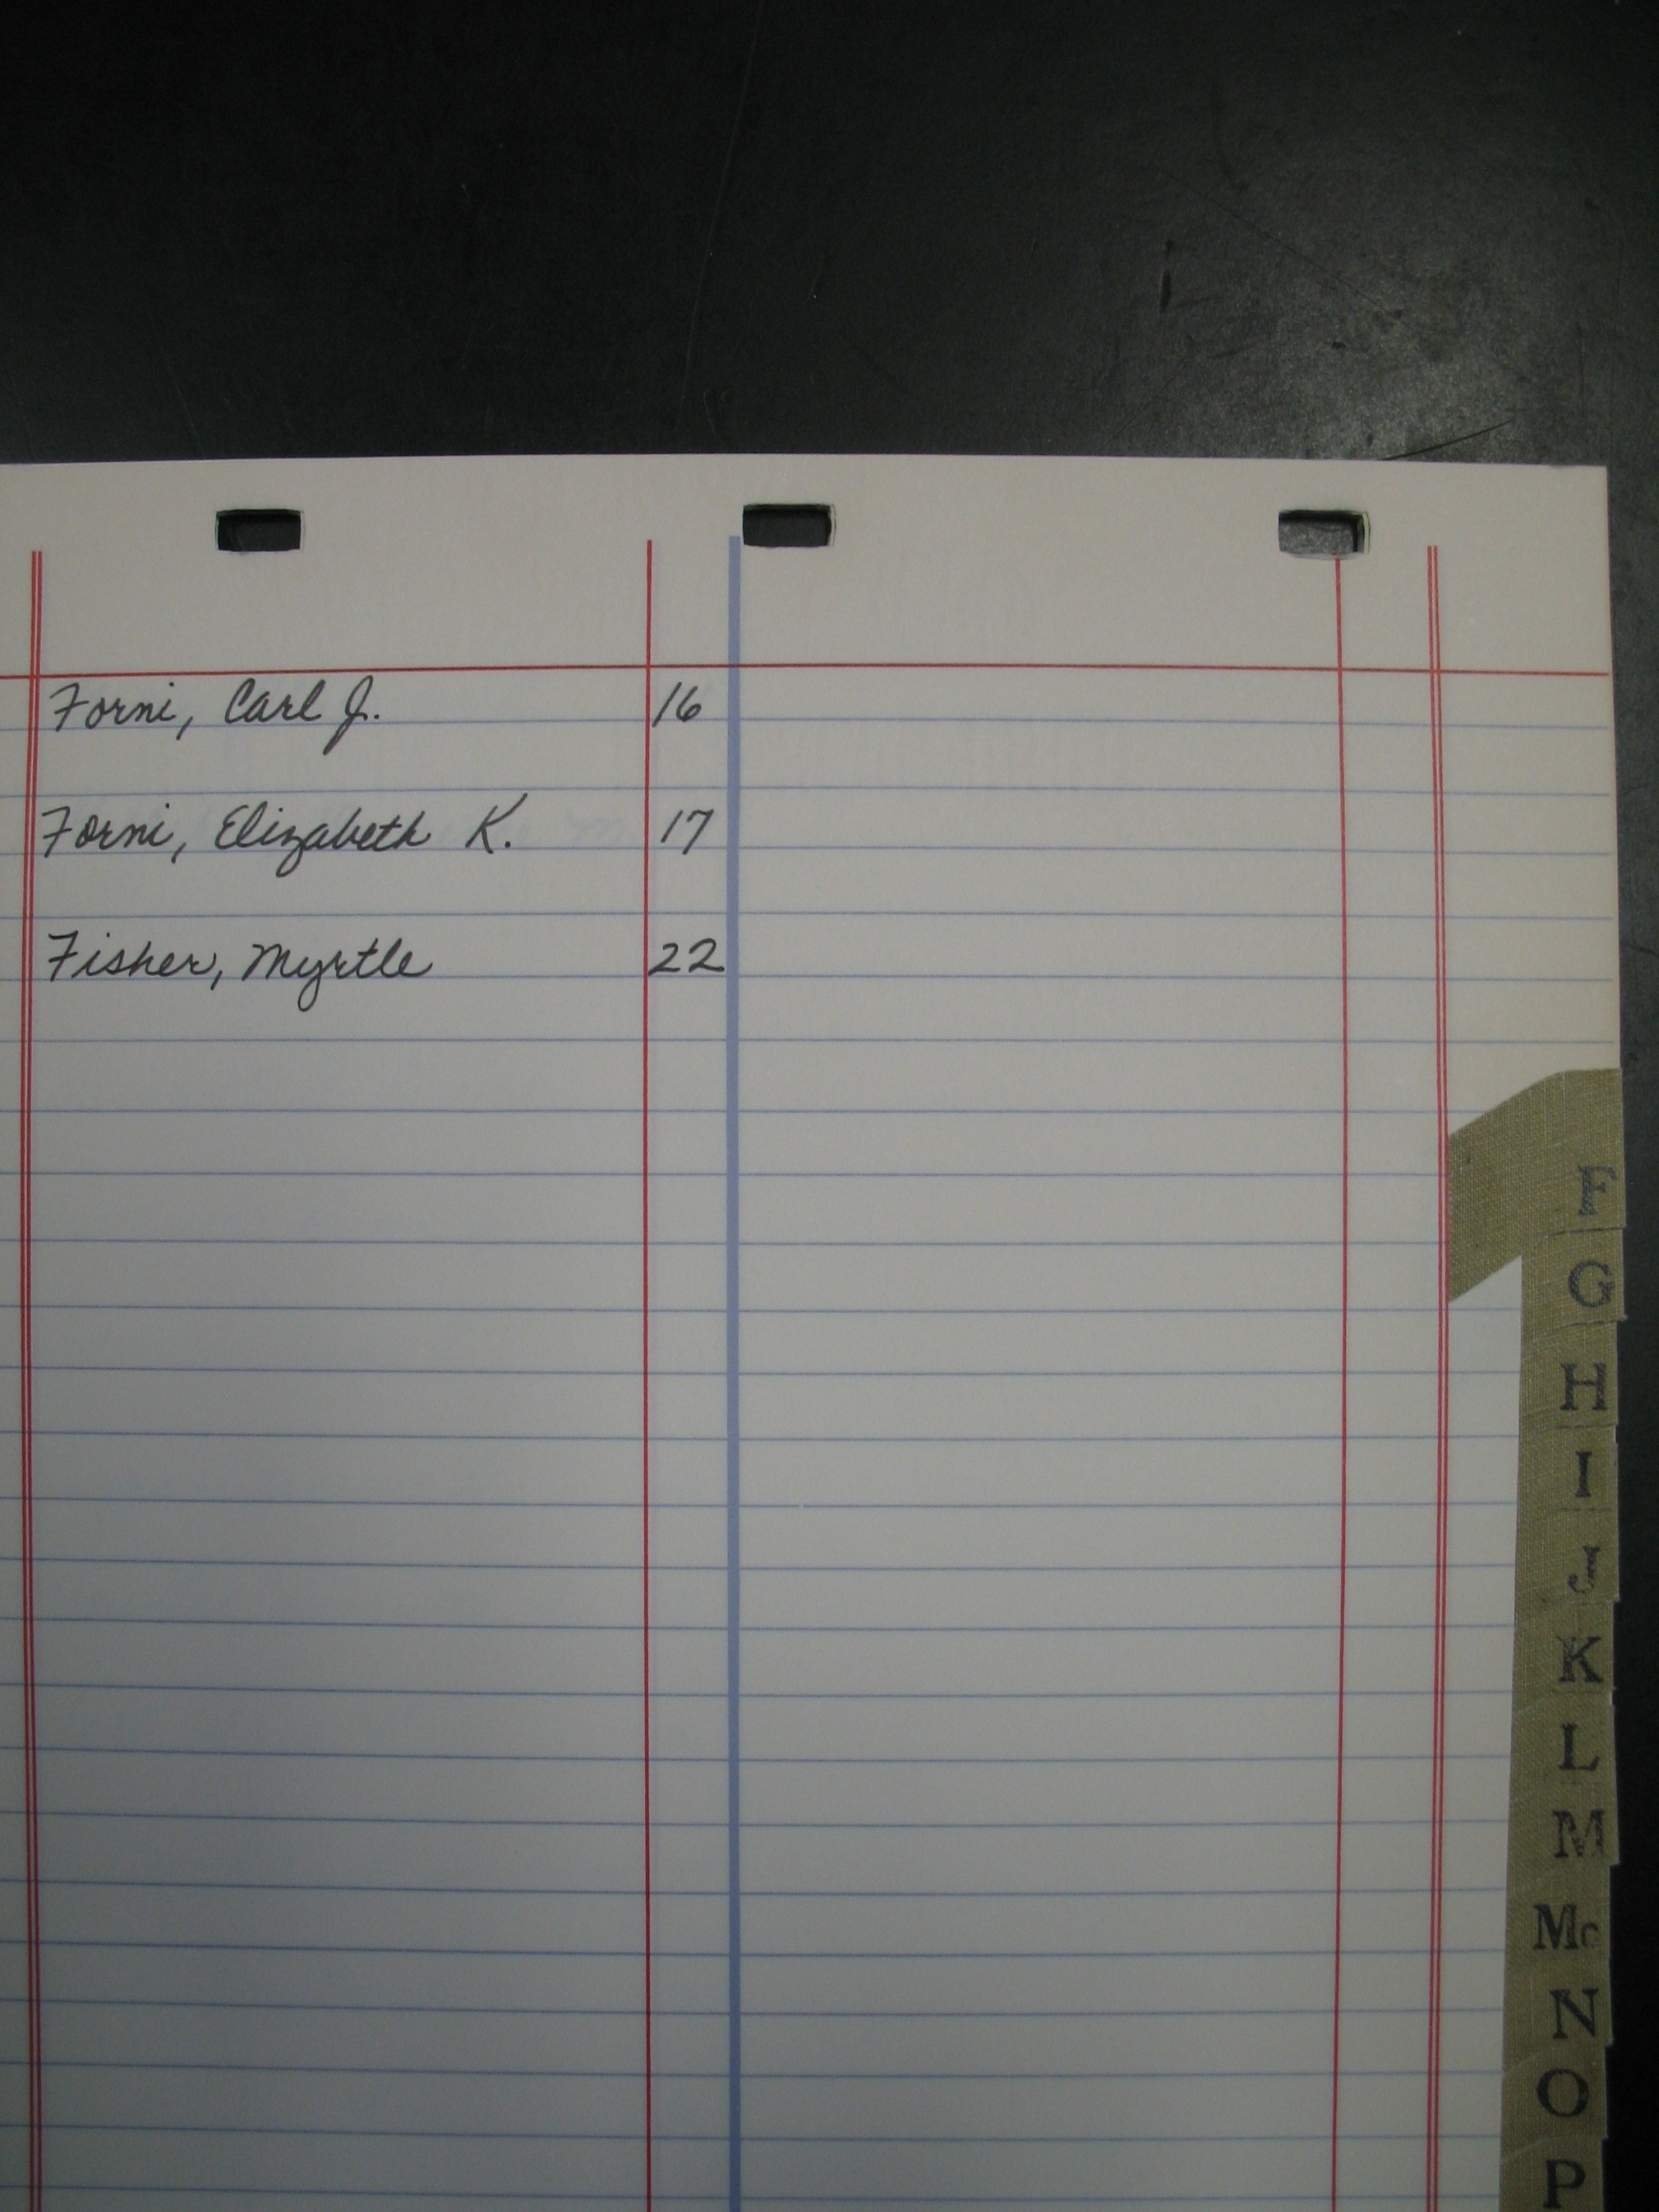 Forni, Carl J. 16
Forni, Elizabeth K. 17
Fisher, Myrtle 22
F
G
H
I
J
K
L
M
Mc
N
O
P